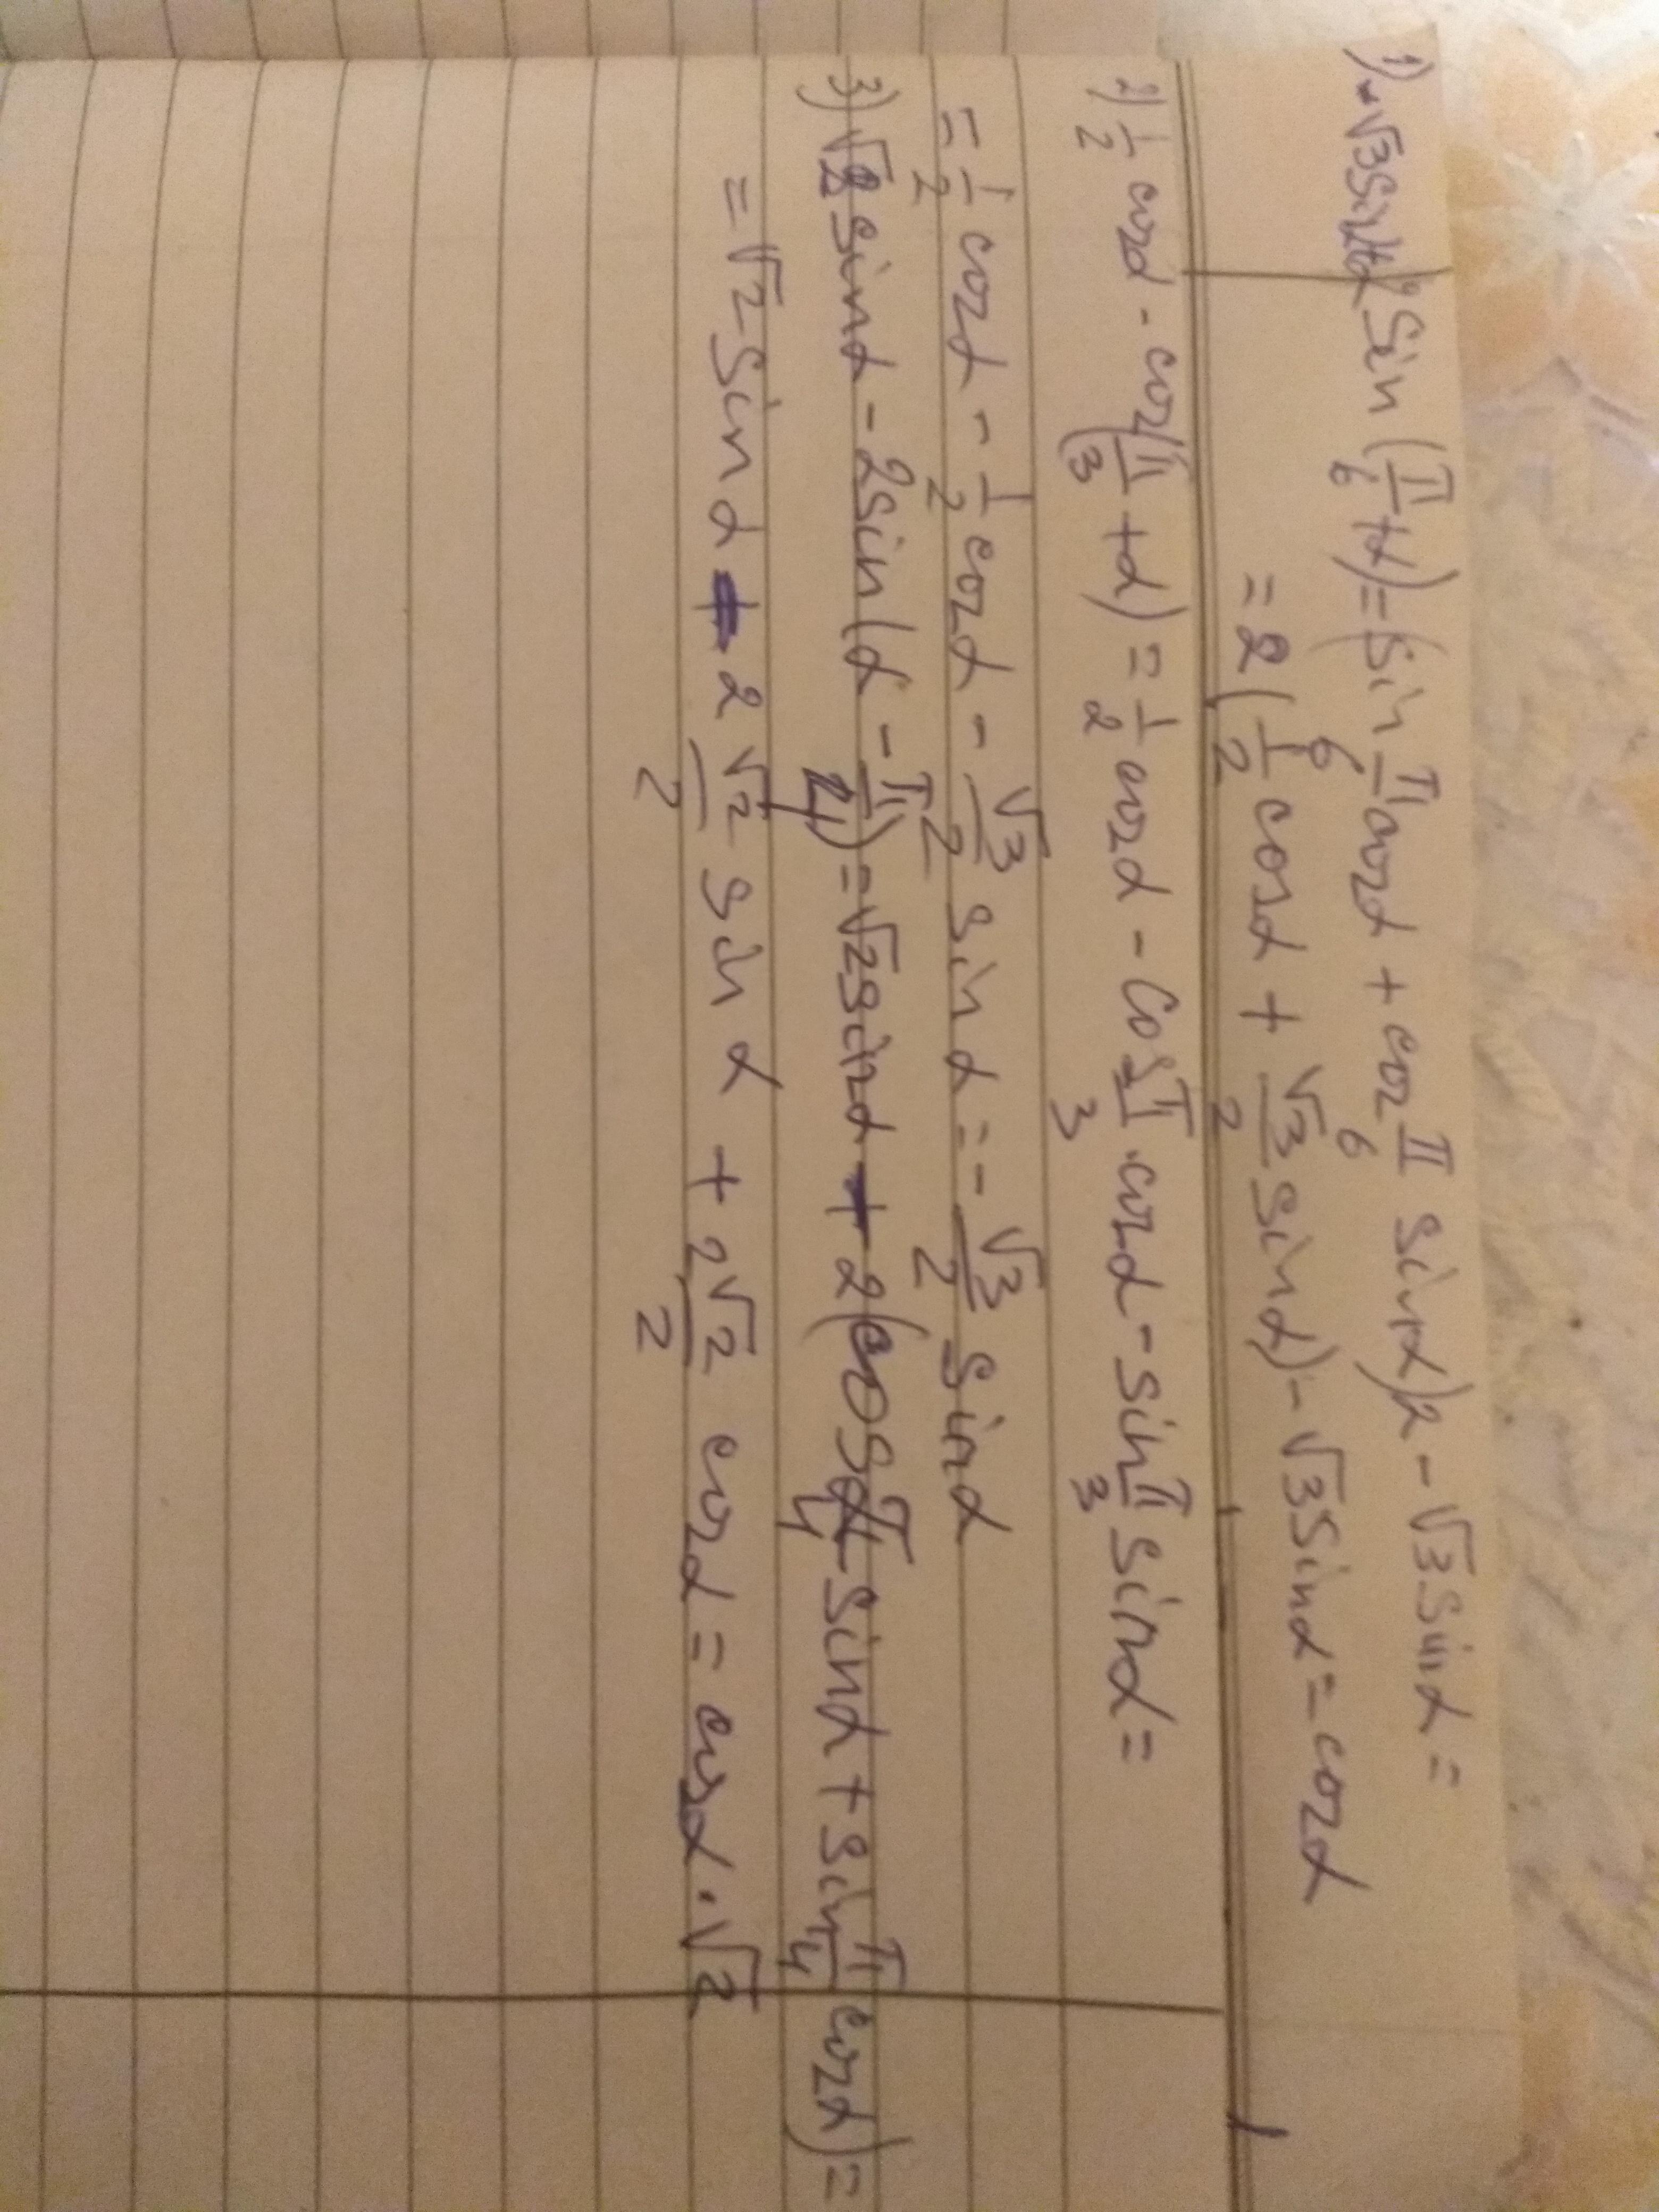 1) 2 Sin (π/6 + α) = (sin π/6 cosα + cos π/6 sinα)2 - √3 sinα =
= 2 (1/2 cosα + √3/2 sinα) - √3 sinα = cosα
2) 1/2 cosα - cos(π/3 + α) = 1/2 cosα - cos π/3 · cosα - sin π/3 sinα =
= 1/2 cosα - 1/2 cosα - √3/2 sinα = - √3/2 sinα
3) √2 sinα - 2sin(α - π/4) = √2 sinα - 2(cos π/4 sinα + sin π/4 cosα) =
= √2 sinα - 2 √2/2 sinα + 2√2/2 cosα = cosα · √2